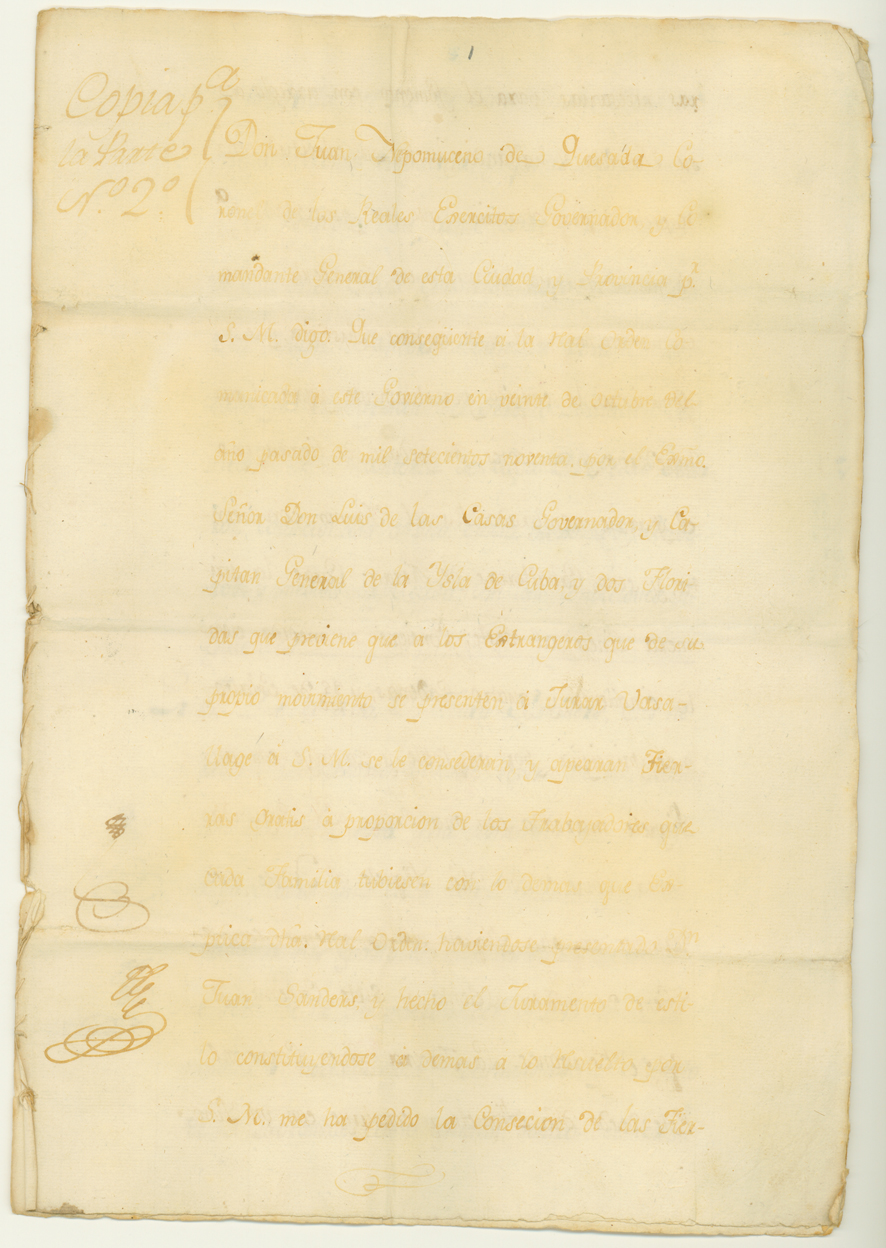 1
Copia pa
la Parte
No. 2o.
Don Juan Nepomuceno de Quesada Co-
ronel de los Reales Exercitos Governador, y Co-
mandante General de esta Ciudad, y Provincia pr.
S. M. digo: Que conseqüente á la Real Orden co-
municada á este Govierno en veinte de Octubre del
año pasado de mil setecientos noventa, por el Exmo.
Señor Don Luis de las Casas Governador, y Ca-
pitan General de la Ysla de Cuba, y dos Flori-
das que previene que á los Extrangeros que de su
propio movimiento se presenten á Jurar Vasa-
llage á S. M. se le consederán, y
Tier-
ras Gratis á proporcion de los Trabajadores que
cada Familia tubiesen con lo demas que Ex-
plica dha. Real Orden haviendose presentado Dn.
Juan Sanders, y hecho el Juramento de esti-
lo constituyendose á demas a lo Resuelto por
S. M. me ha pedido la Consecion de las Tier-